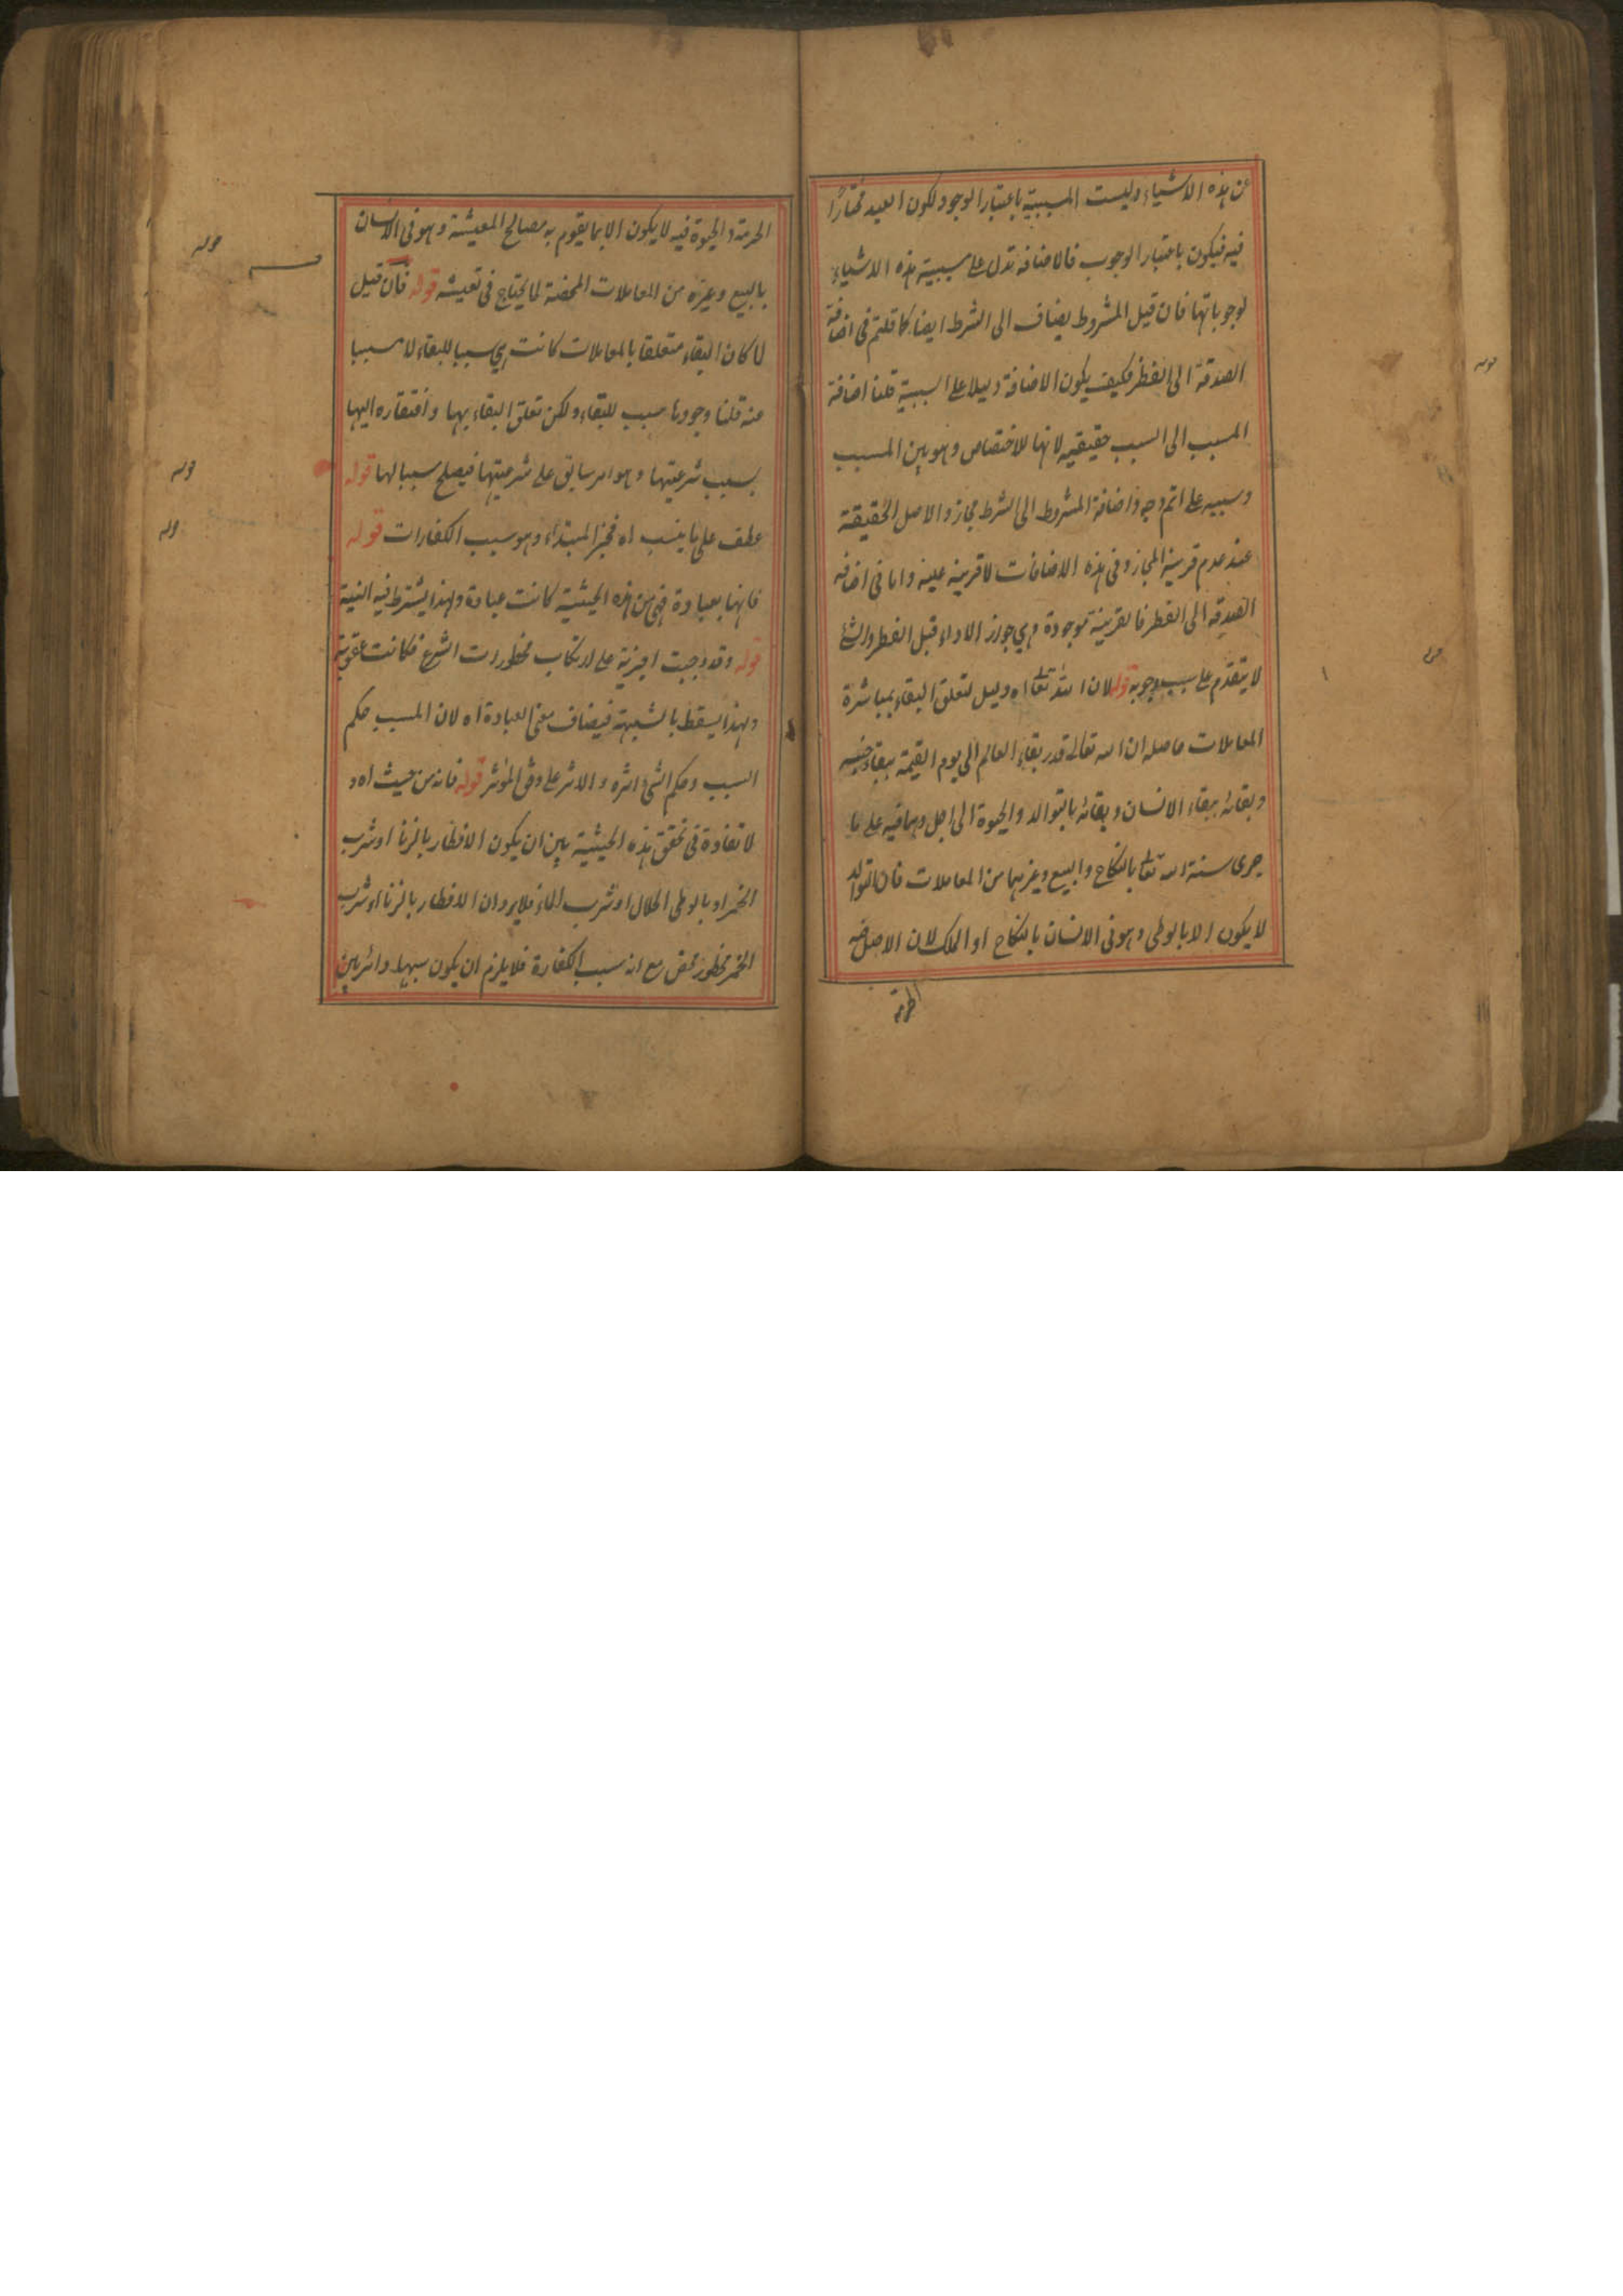 عن هذه الاشياء وليست المسببية باعتبار الوجود لكون العبد مختارًا
فيه فيكون باعتبار الوجوب فالاضافة تدل على سببية هذه الاشياء
لوجوباتها فان قيل المشروط يضاف الى الشرط ايضا كما قلتم فى اضافة
الصدقة الى الفطر فكيف يكون الاضافة دليلا على السببية قلنا اضافة
المسبب الى السبب حقيقيه لانها للاختصاص وهو بين المسبب
وسببيه على اتم وجه واضافة المشروط الى الشرط مجاز والاصل الحقيقة
عند عدم قرينة المجاز وفى هذه الاضافات لا قرينه عليه واما فى اضافه
الصدقه الى الفطر فالقرينة موجودة وهي جواز الاداء قبل الفطر والشئ
لا يتقدم على سبب وجوبه قوله لان الله تعالى اه دليل لتعلق البقاء بمباشرة
المعاملات حاصله ان الله تعالى قدر بقاء العالم الى يوم القيمة ببقاء جنسه
وبقائه ببقاء الانسان وبقائه بالتوالد والحيوة الى اجل وهما فيه على ما
جرى سنة الله تعالى بالنكاح والبيع وغيرهما من المعاملات فان التوالد
لا يكون الا بالوطى وهو فى الانسان بالنكاح او الملك لان الاصل فيه
الحرمة
الحرمة والحيوة فيه لا يكون الا بما يقوم به مصالح المعيشة وهو فى الانسان
بالبيع وغيره من المعاملات المحضة لما يحتاج فى تعيشه قوله فان قيل
لما كان البقاء متعلقا بالمعاملات كانت هي سببا للبقاء لا مسببا
عنه قلنا وجودها سبب للبقاء ولكن تعلق البقاء بها وافتقاره اليها
بسبب شرعيتها وهو امر سابق على شرعيتها فيصلح سببا لها قوله
عطف على ما ينسب اه فخبر المبتداء وهو سبب الكفارات قوله
فانها بعبادة فهى من هذه الحيثية كانت عبادة ولهذا يشترط فيه النية
قوله وقد وجبت اجزية على ارتكاب محظورات الشرع فكانت عقوبة
ولهذا يسقط بالشبهة فيضاف معنى العبادة اه لان المسبب حكم
السبب وحكم الشئ اثره والاثر على وفق المؤثر قوله فانه من حيث اه و
لا تفاوت فى تحقق هذه الحيثية بين ان يكون الافطار بالزنا او شرب
الخمر او بالوطى الحلال او شرب الماء فلا يرد ان الافطار بالزنا او شرب
الخمر محظور محض مع انه سبب الكفارة فلا يلزم ان يكون سببها دائر بين